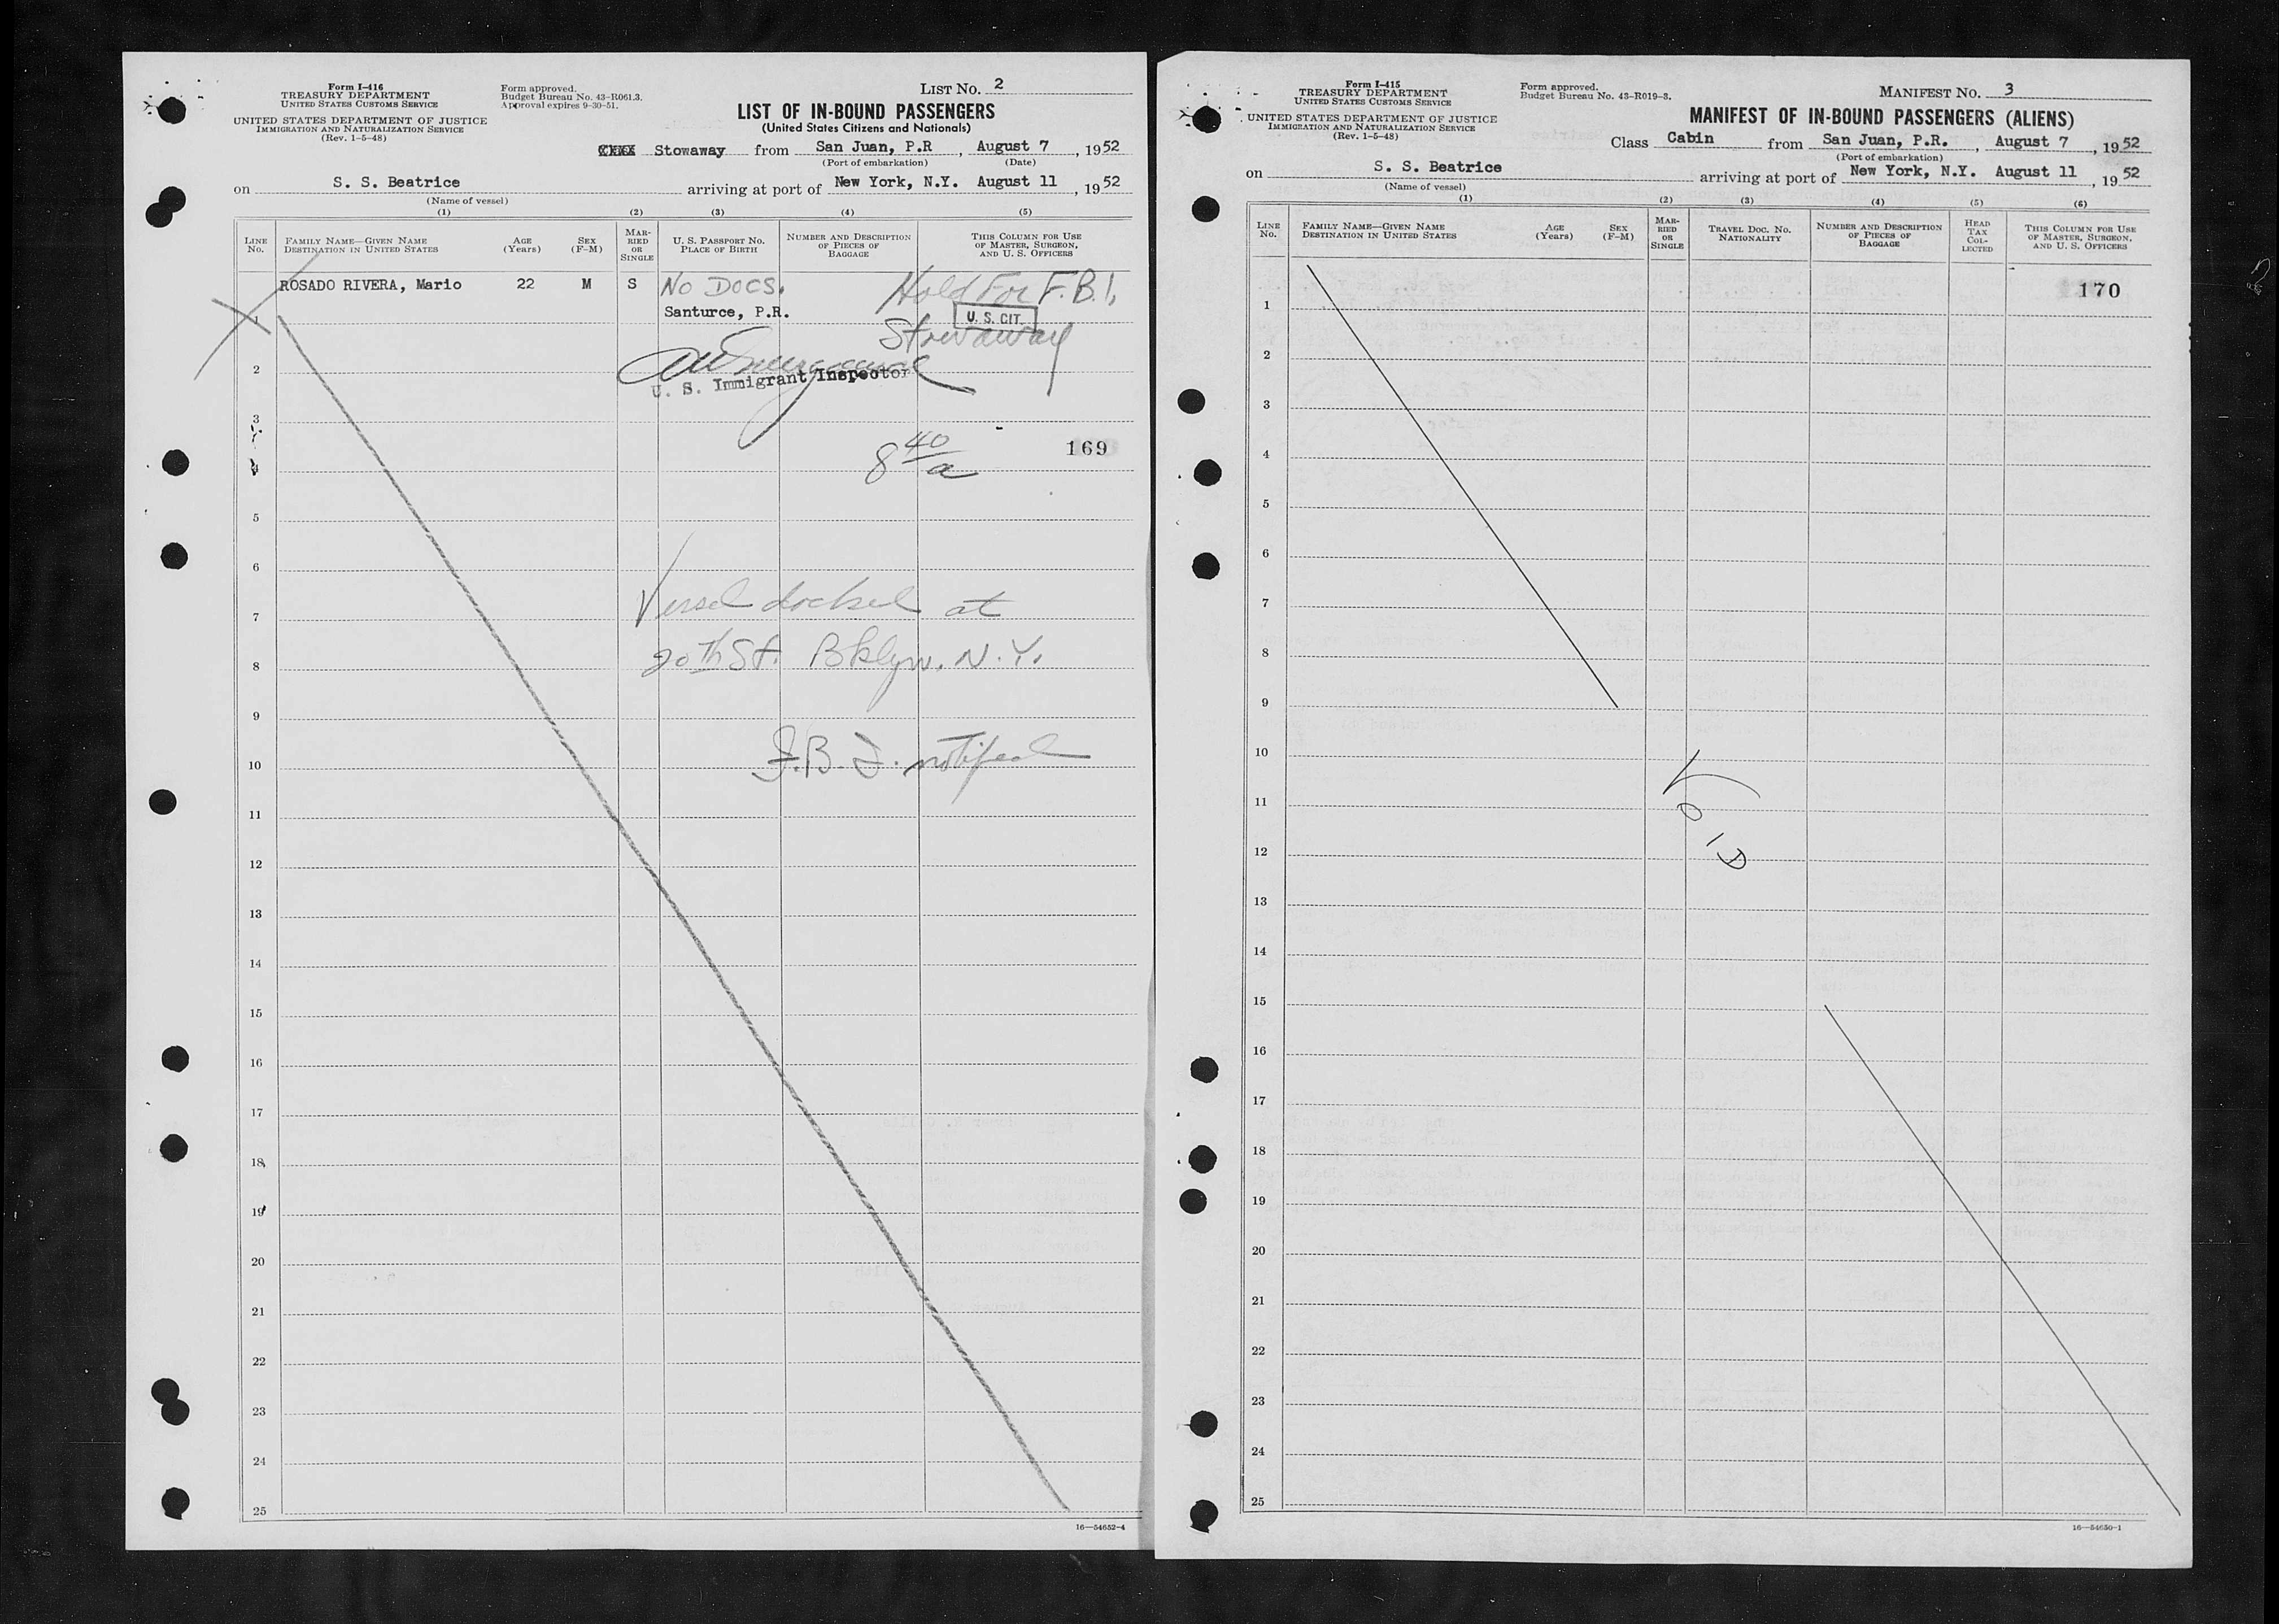 Form I-416
TREASURY DEPARTMENT
UNITED STATES CUSTOMS SERVICE
UNITED STATES DEPARTMENT OF JUSTICE
IMMIGRATION AND NATURALIZATION SERVICE
(Rev. 1-5-48)
Form approved.
Budget Bureau No. 43-R061.3.
Approval expires 9-30-51.
LIST NO. 2
LIST OF IN-BOUND PASSENGERS
(United States Citizens and Nationals)
Stowaway from San Juan, P.R , August 7 , 1952
(Port of embarkation) (Date)
on S. S. Beatrice arriving at port of New York, N.Y. August 11 , 1952
(Name of vessel)
(1) (2) (3) (4) (5)
LINE NO.
FAMILY NAME—GIVEN NAME
DESTINATION IN UNITED STATES
AGE (Years)
SEX (F-M)
MARRIED OR SINGLE
U. S. PASSPORT NO.
PLACE OF BIRTH
NUMBER AND DESCRIPTION OF PIECES OF BAGGAGE
THIS COLUMN FOR USE OF MASTER, SURGEON, AND U. S. OFFICERS
ROSADO RIVERA, Mario 22 M S NO DOCS. Hold For F.B.I.
1 Santurce, P.R. U. S. CIT.
Stowaway
2 U. S. Immigrant Inspector
3
8 40/a 169
4
5
6
7 Vessel docked at
8 20th St. Bklyn. N.Y.
9
10 F.B.I. notified
11
12
13
14
15
16
17
18
19
20
21
22
23
24
25
16—54652-4
Form I-415
TREASURY DEPARTMENT
UNITED STATES CUSTOMS SERVICE
UNITED STATES DEPARTMENT OF JUSTICE
IMMIGRATION AND NATURALIZATION SERVICE
(Rev. 1-5-48)
Form approved.
Budget Bureau No. 43-R019-3.
MANIFEST NO. 3
MANIFEST OF IN-BOUND PASSENGERS (ALIENS)
Class Cabin from San Juan, P.R. , August 7 , 1952
(Port of embarkation)
on S. S. Beatrice arriving at port of New York, N.Y. August 11 , 1952
(Name of vessel)
(1) (2) (3) (4) (5) (6)
LINE NO.
FAMILY NAME—GIVEN NAME
DESTINATION IN UNITED STATES
AGE (Years)
SEX (F-M)
MARRIED OR SINGLE
TRAVEL DOC. NO.
NATIONALITY
NUMBER AND DESCRIPTION OF PIECES OF BAGGAGE
HEAD TAX COLLECTED
THIS COLUMN FOR USE OF MASTER, SURGEON, AND U. S. OFFICERS
170
1
2
3
4
5
6
7
8
9
10
11
VOID
12
13
14
15
16
17
18
19
20
21
22
23
24
25
16—54650-1